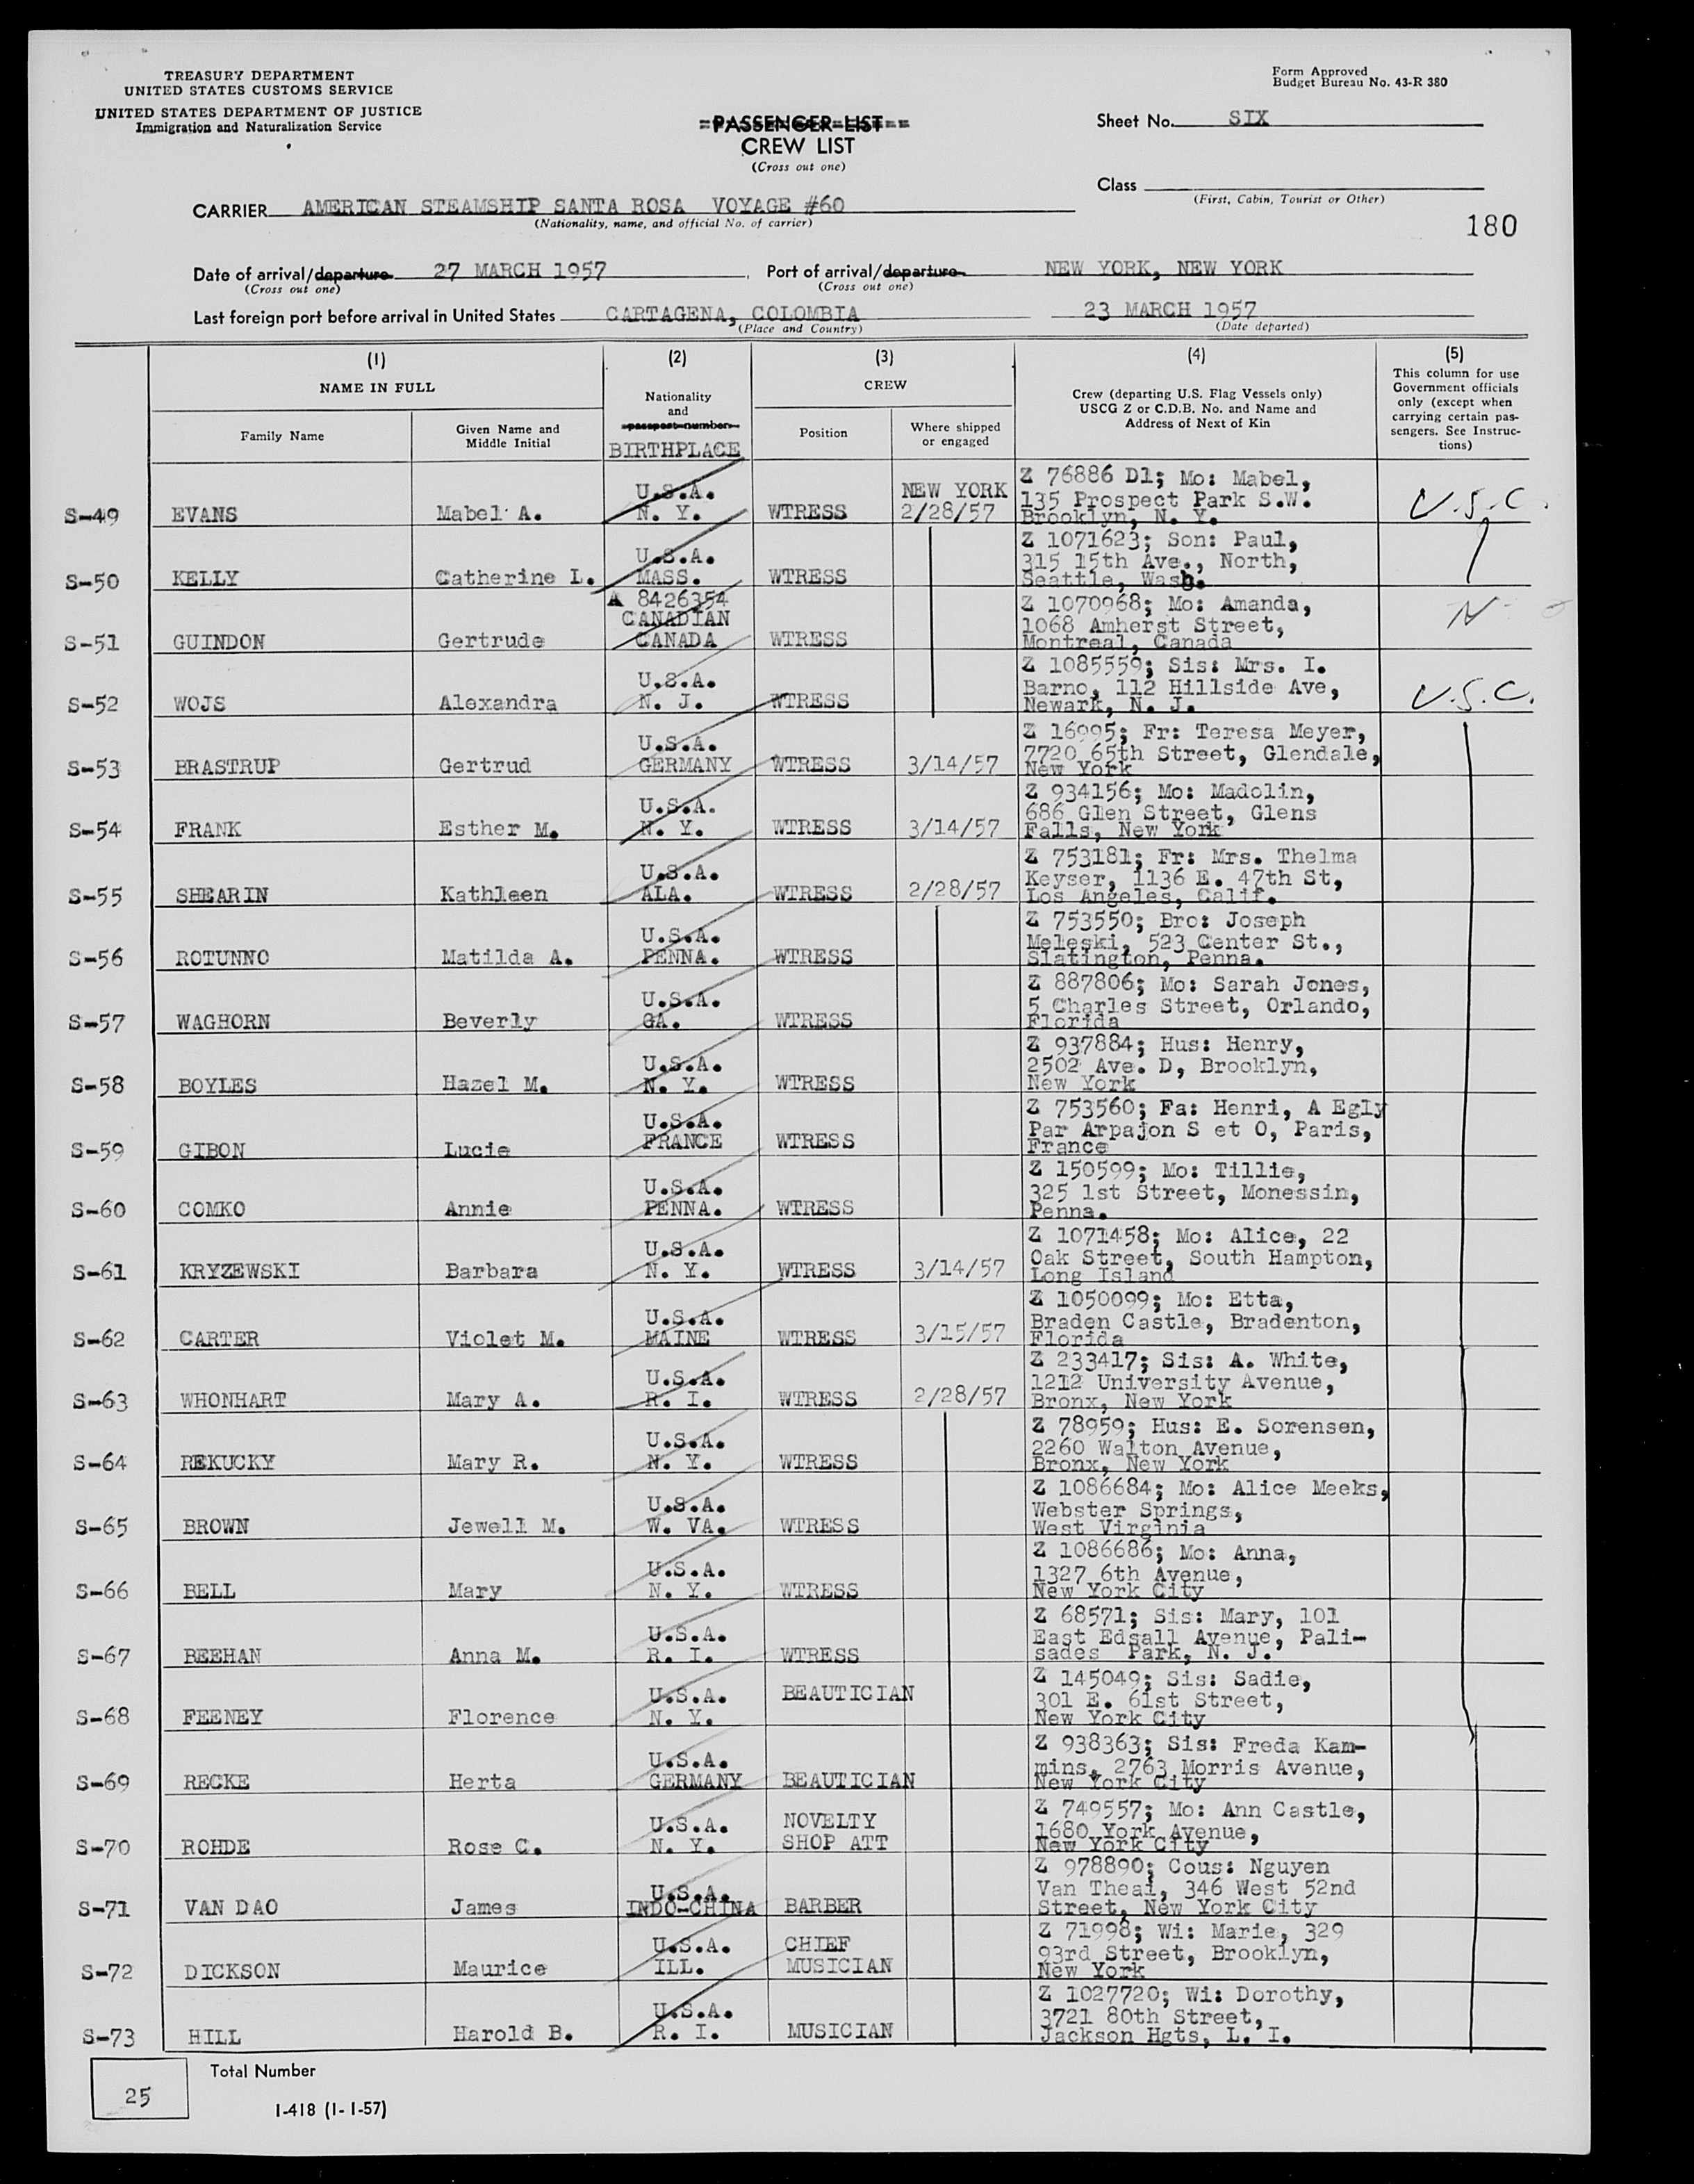 TREASURY DEPARTMENT
UNITED STATES CUSTOMS SERVICE
UNITED STATES DEPARTMENT OF JUSTICE
Immigration and Naturalization Service
Form Approved
Budget Bureau No. 43-R 380
PASSENGER LIST
CREW LIST
(Cross out one)
Sheet No. SIX
Class
(First, Cabin, Tourist or Other)
CARRIER AMERICAN STEAMSHIP SANTA ROSA VOYAGE #60
(Nationality, name, and official No. of carrier)
180
Date of arrival/departure 27 MARCH 1957, Port of arrival/departure NEW YORK, NEW YORK
(Cross out one) (Cross out one)
Last foreign port before arrival in United States CARTAGENA, COLOMBIA 23 MARCH 1957
(Place and Country) (Date departed)
(1) (2) (3) (4) (5)
NAME IN FULL
Family Name
Given Name and
Middle Initial
Nationality
and
passport number
BIRTHPLACE
CREW
Position
Where shipped
or engaged
Crew (departing U.S. Flag Vessels only)
USCG Z or C.D.B. No. and Name and
Address of Next of Kin
This column for use
Government officials
only (except when
carrying certain pas-
sengers. See Instruc-
tions)
Z 76886 D1; Mo: Mabel,
U.S.A. NEW YORK 135 Prospect Park S.W. U.S.C.
S-49 EVANS Mabel A. N. Y. WTRESS 2/28/57 Brooklyn, N. Y.
Z 1071623; Son: Paul,
U.S.A. 315 15th Ave., North,
S-50 KELLY Catherine L. MASS. WTRESS Seattle, Wash.
A 8426354 Z 1070968; Mo: Amanda,
CANADIAN 1068 Amherst Street, N
S-51 GUINDON Gertrude CANADA WTRESS Montreal, Canada
Z 1085559; Sis: Mrs. I.
U.S.A. Barno, 112 Hillside Ave, U.S.C.
S-52 WOJS Alexandra N. J. WTRESS Newark, N. J.
Z 16995; Fr: Teresa Meyer,
U.S.A. 7720 65th Street, Glendale,
S-53 BRASTRUP Gertrud GERMANY WTRESS 3/14/57 New York
Z 934156; Mo: Madolin,
U.S.A. 686 Glen Street, Glens
S-54 FRANK Esther M. N. Y. WTRESS 3/14/57 Falls, New York
Z 753181; Fr: Mrs. Thelma
U.S.A. Keyser, 1136 E. 47th St,
S-55 SHEARIN Kathleen ALA. WTRESS 2/28/57 Los Angeles, Calif.
Z 753550; Bro: Joseph
U.S.A. Meleski, 523 Center St.,
S-56 ROTUNNO Matilda A. PENNA. WTRESS Slatington, Penna.
Z 887806; Mo: Sarah Jones,
U.S.A. 5 Charles Street, Orlando,
S-57 WAGHORN Beverly GA. WTRESS Florida
Z 937884; Hus: Henry,
U.S.A. 2502 Ave. D, Brooklyn,
S-58 BOYLES Hazel M. N. Y. WTRESS New York
Z 753560; Fa: Henri, A Egly
U.S.A. Par Arpajon S et O, Paris,
S-59 GIBON Lucie FRANCE WTRESS France
Z 150599; Mo: Tillie,
U.S.A. 325 1st Street, Monessin,
S-60 COMKO Annie PENNA. WTRESS Penna.
Z 1071458; Mo: Alice, 22
U.S.A. Oak Street, South Hampton,
S-61 KRYZEWSKI Barbara N. Y. WTRESS 3/14/57 Long Island
Z 1050099; Mo: Etta,
U.S.A. Braden Castle, Bradenton,
S-62 CARTER Violet M. MAINE WTRESS 3/15/57 Florida
Z 233417; Sis: A. White,
U.S.A. 1212 University Avenue,
S-63 WHONHART Mary A. R. I. WTRESS 2/28/57 Bronx, New York
Z 78959; Hus: E. Sorensen,
U.S.A. 2260 Walton Avenue,
S-64 REKUCKY Mary R. N. Y. WTRESS Bronx, New York
Z 1086684; Mo: Alice Meeks,
U.S.A. Webster Springs,
S-65 BROWN Jewell M. W. VA. WTRESS West Virginia
Z 1086686; Mo: Anna,
U.S.A. 1327 6th Avenue,
S-66 BELL Mary N. Y. WTRESS New York City
Z 68571; Sis: Mary, 101
U.S.A. East Edsall Avenue, Pali-
S-67 BEEHAN Anna M. R. I. WTRESS sades Park, N. J.
Z 145049; Sis: Sadie,
U.S.A. BEAUTICIAN 301 E. 61st Street,
S-68 FEENEY Florence N. Y. New York City
Z 938363; Sis: Freda Kam-
U.S.A. mins, 2763 Morris Avenue,
S-69 RECKE Herta GERMANY BEAUTICIAN New York City
Z 749557; Mo: Ann Castle,
U.S.A. NOVELTY 1680 York Avenue,
S-70 ROHDE Rose C. N. Y. SHOP ATT New York City
Z 978890; Cous: Nguyen
U.S.A. Van Theai, 346 West 52nd
S-71 VAN DAO James INDO-CHINA BARBER Street, New York City
Z 71998; Wi: Marie, 329
U.S.A. CHIEF 93rd Street, Brooklyn,
S-72 DICKSON Maurice ILL. MUSICIAN New York
Z 1027720; Wi: Dorothy,
U.S.A. 3721 80th Street,
S-73 HILL Harold B. R. I. MUSICIAN Jackson Hgts, L. I.
25 Total Number
I-418 (1-1-57)